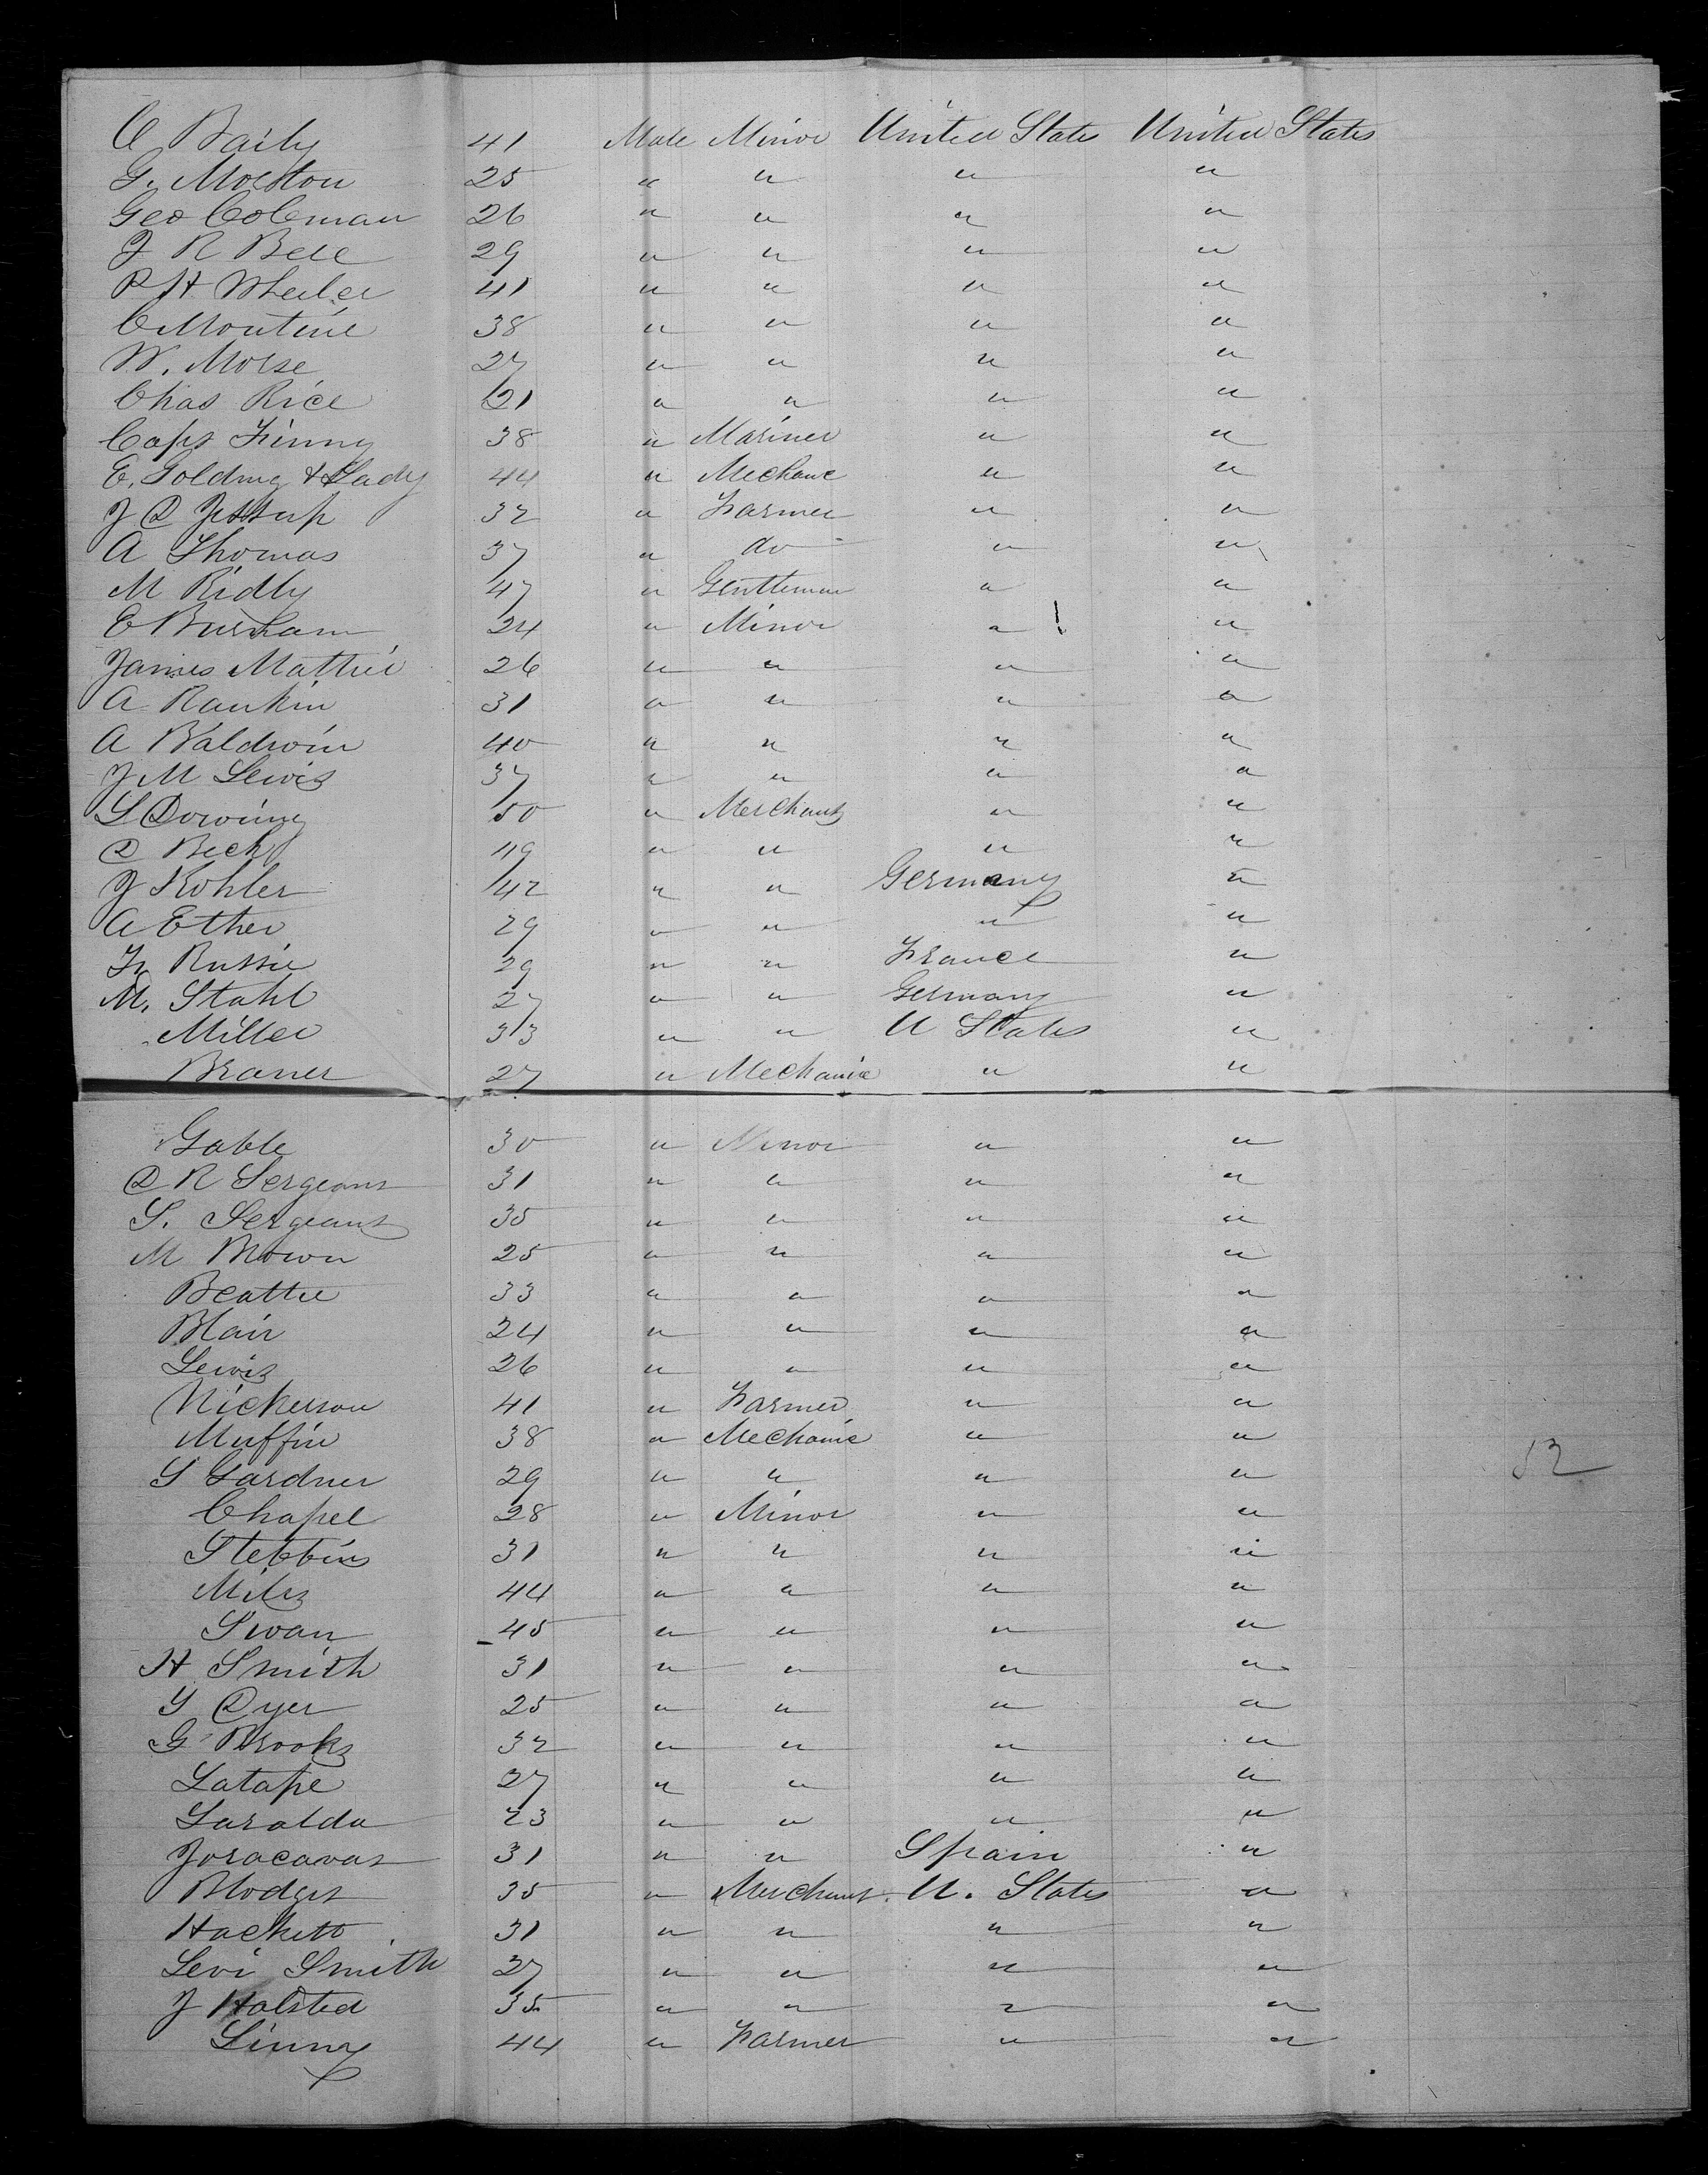 C Baily 41 Male Minor United States United States
G. Morton 25 " " " "
Geo Coleman 26 " " " "
J R Bell 29 " " " "
P H Wheeler 41 " " " "
C 38 " " " "
W. Morse 27 " " " "
Chas Rice 21 " " " "
Capt Finny 38 " Mariner " "
E. Golding & Lady 44 " Mechanic " "
J D Jessup 32 " Farmer " "
A Thomas 37 " do " "
M Ridly 47 " Gentleman " "
E Burnham 24 " Minor " "
James Mattier 26 " " " "
A Rankin 31 " " " "
A Baldwin 40 " " " "
J M Lewis 37 " " " "
S Downing 50 " Merchant " "
D Beck 49 " " " "
J Kohler 42 " " Germany "
A Ether 29 " " " "
Fr Russie 29 " " France "
M. Stahl 27 " " Germany "
Miller 33 " " U States "
Braner 27 " Mechanic " "
Gable 30 " Minor " "
D R Sergeant 31 " " " "
S. Sergeant 35 " " " "
M Brown 25 " " " "
Beattie 33 " " " "
Blair 24 " " " "
Lewis 26 " " " "
Nickerson 41 " Farmer " "
Muffin 38 " Mechanic " "
S Gardner 29 " " " "
Chapel 28 " Minor " "
Stebbins 31 " " " "
Miles 44 " " " "
Swan 45 " " " "
H Smith 31 " " " "
Y Dyer 25 " " " "
G Brooks 32 " " " "
Latape 27 " " " "
Laralda 23 " " " "
Joracavas 31 " " Spain "
Blodget 35 " Merchant U. States "
Hackett 31 " " " "
Levi Smith 27 " " " "
J Halsted 35 " " " "
Linny 44 " Farmer " "
52